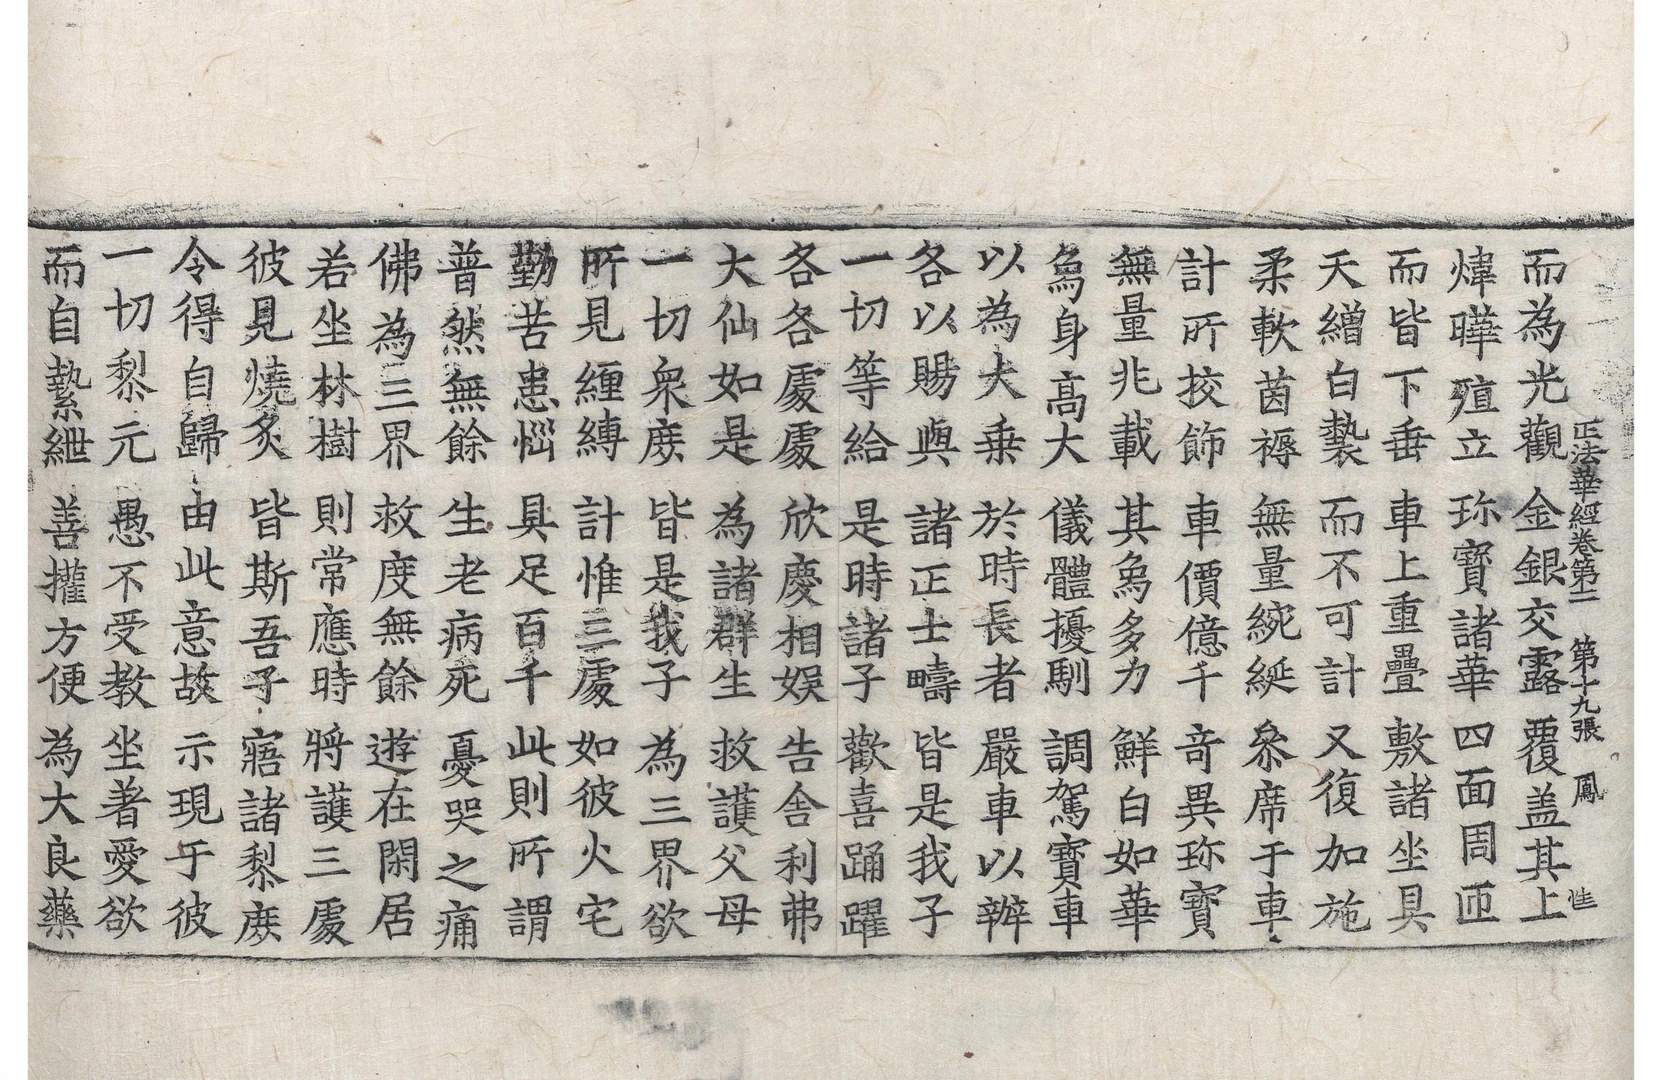 正法華經卷第二　第十九張　鳳
而為光觀　金銀交露　覆盖其上
煒曄殖立　珎寳諸華　四面周匝
而皆下垂　車上重疊　敷諸坐具
天繒白㲲　而不可計　又復加施
柔軟茵褥　無量綩綖　叅席于車
計所挍飾　車價億千　奇異珎寳
無量兆載　其烏多力　鮮白如華
烏身高大　儀體擾馴　調駕寳車
以為大乗　於時長者　嚴車以辦
各以賜與　諸正士疇　皆是我子
一切等給　是時諸子　歡喜踊躍
各各處處　欣慶相娛　告舎利弗
大仙如是　為諸群生　救護父母
一切衆庻　皆是我子　為三界欲
所見纏縛　計惟三處　如彼火宅
勤苦患惱　具足百千　此則所謂
普然無餘　生老病死　憂哭之痛
佛為三界　救度無餘　遊在閑居
若坐林樹　則常應時　將護三處
彼見燒炙　皆斯吾子　寤諸黎庻
令得自歸　由此意故　示現于彼
一切黎元　愚不受教　坐著愛欲
而自縶紲　善攉方便　為大良藥